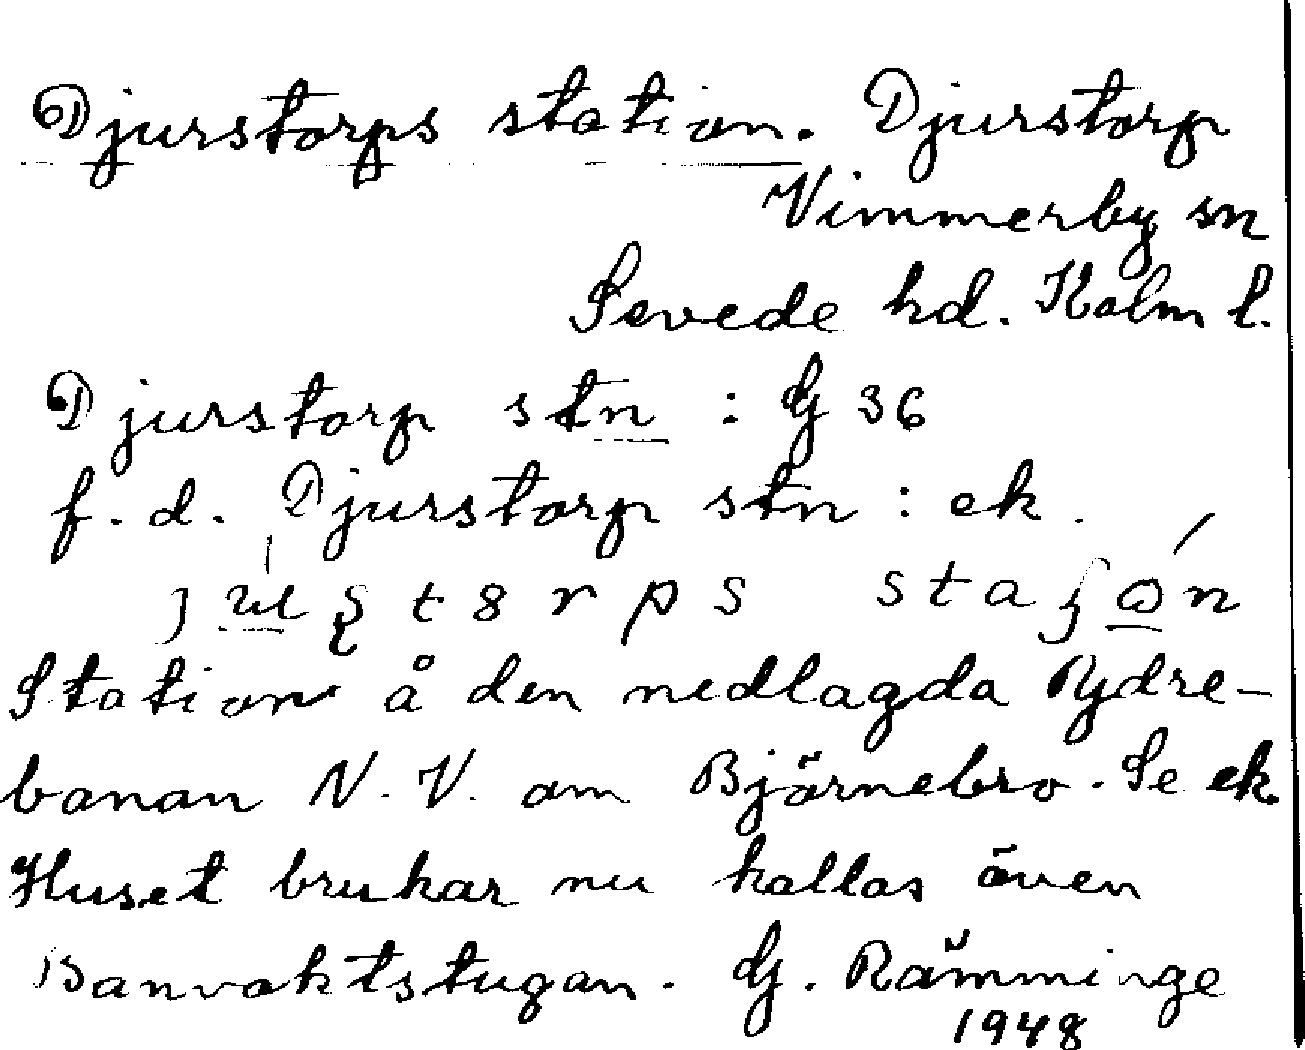 Djurstorps station. Djurstorp
Vimmerby sn
Sevede hd. Kalm l.
Djurstorp stn : G 36
f. d. Djurstorp stn : ek.
stn
Station å den nedlagda Ydre-
banan N. V. om Björnebro. Se ek.
Huset brukar nu kallas även
Banvaktstugan. G. Rämminge
1948